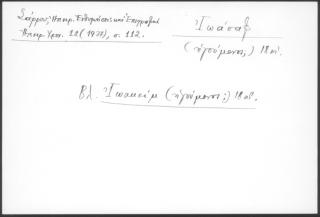 Σάρρος, Ηπειρ. Ενθυμήσεις και Επιγραφαί
Ηπειρ. Χρον. 12 (1937), σ. 112.
Ἰωάσαφ
(ἡγούμενος;) 18 αἰ.
Βλ. Ἰωακείμ (ἡγούμενος;) 18 αἰ.